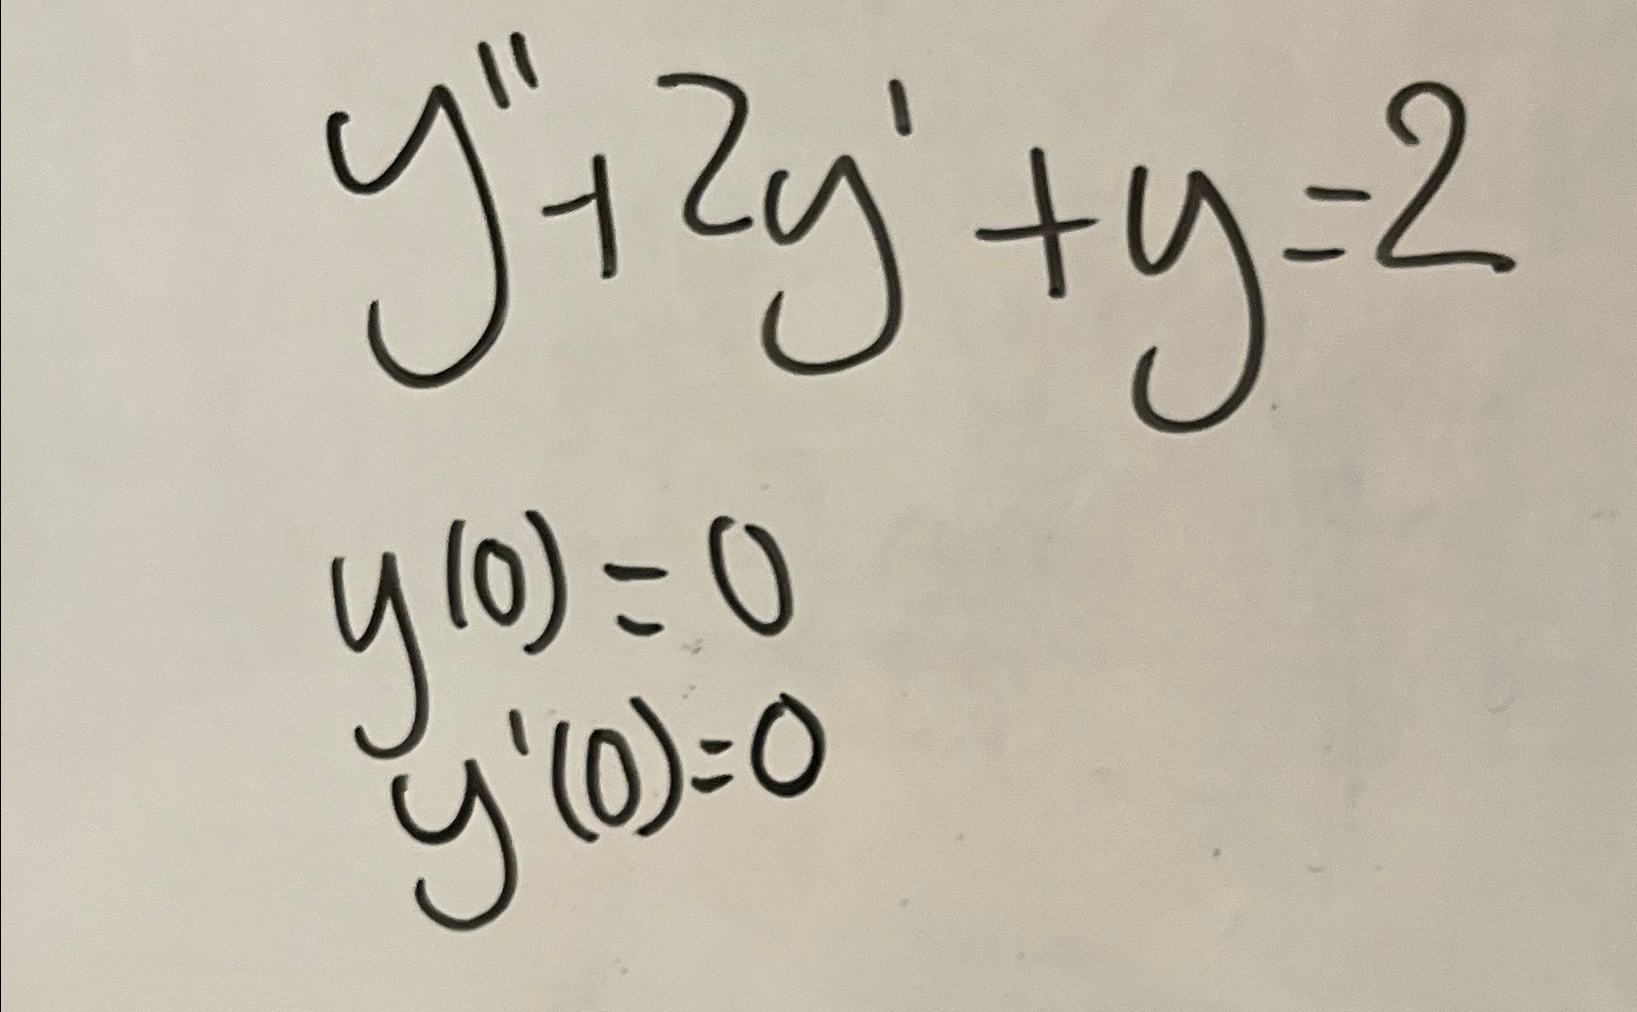 y"+2y'+y=2
y(0)=0
y'(0)=0